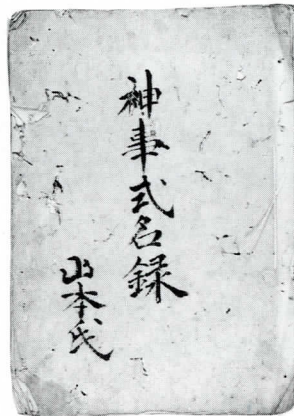 神事式名録
山本氏